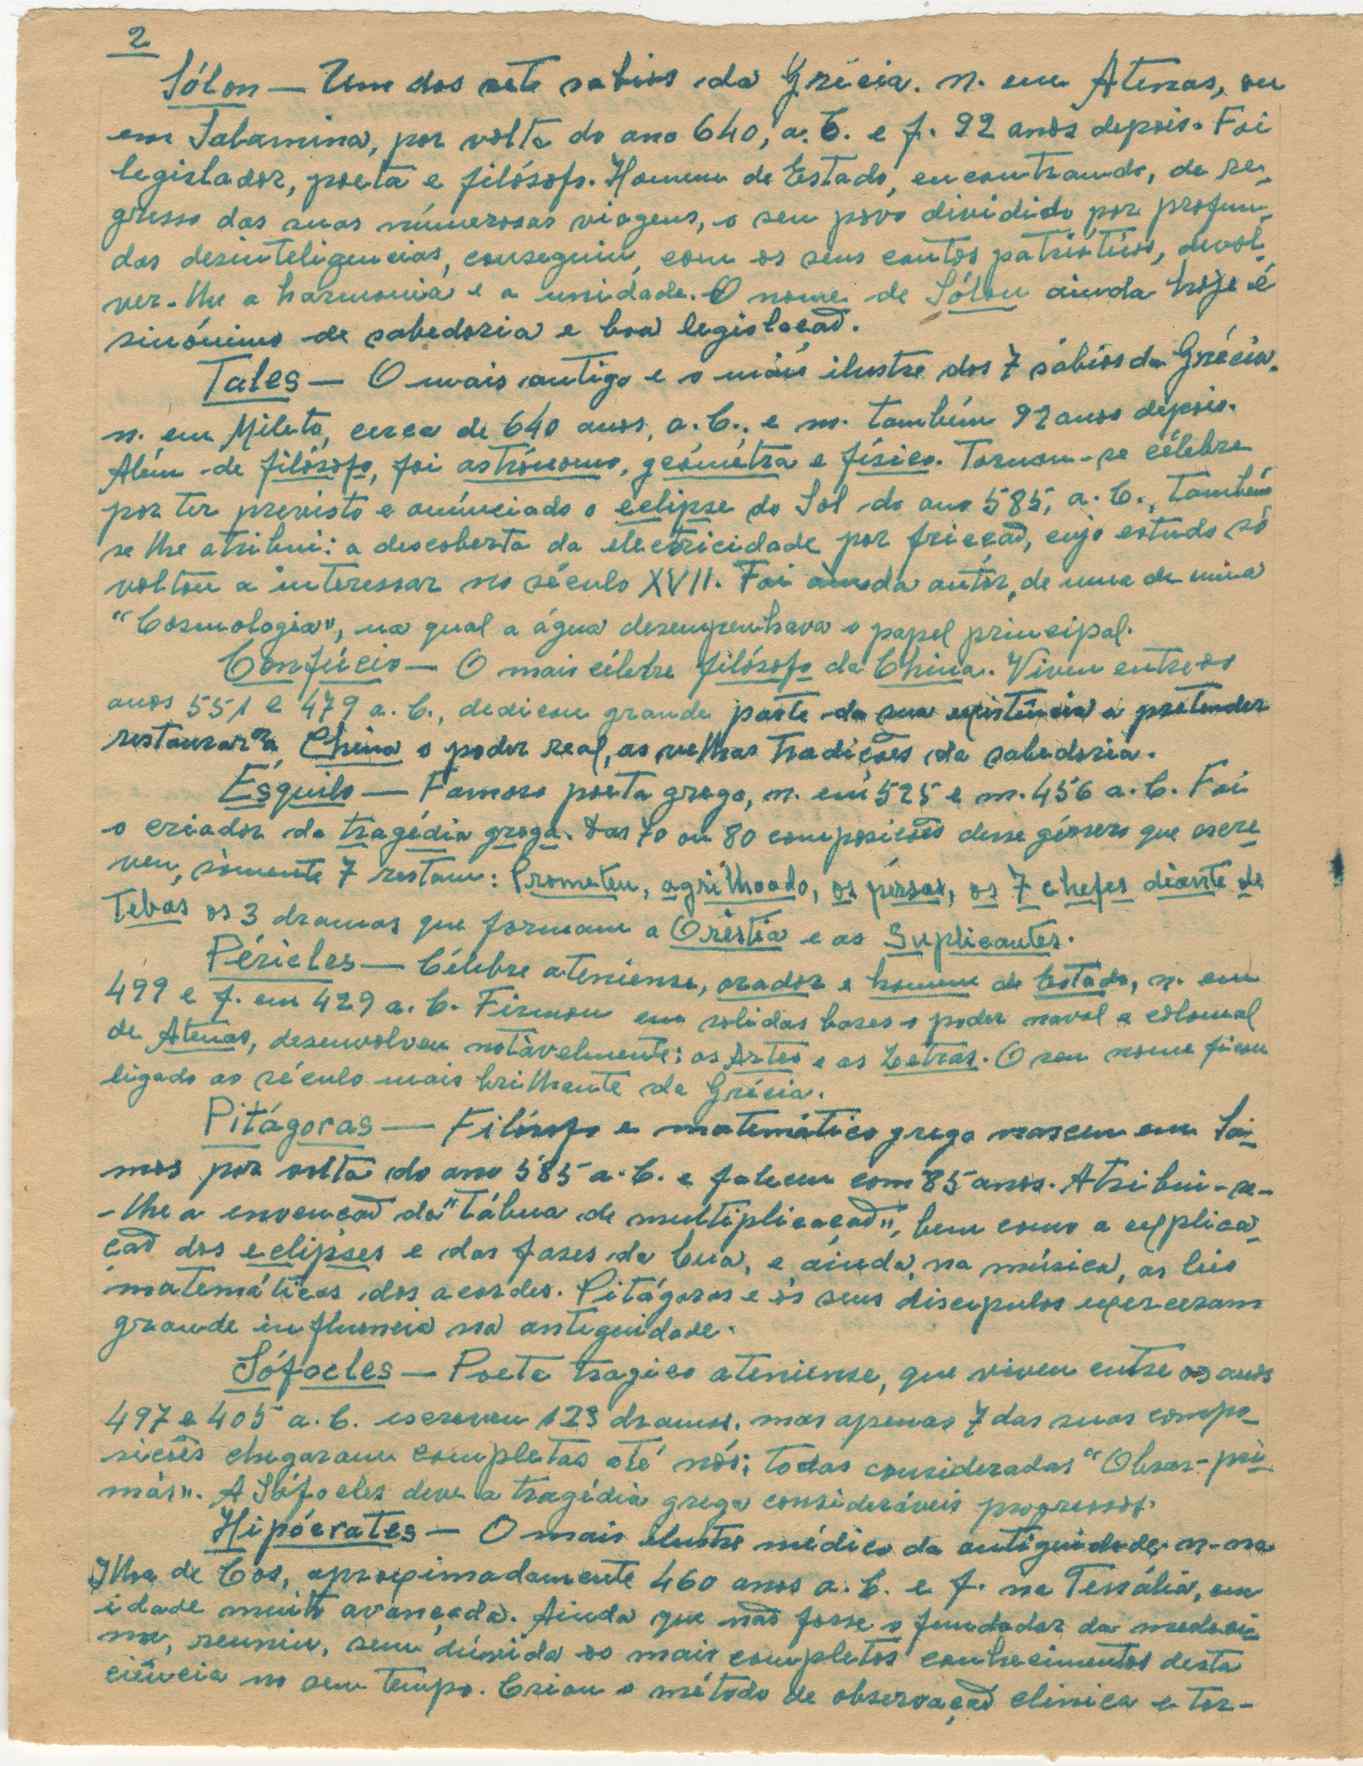 2
Sólon — Um dos sete sabios da Grécia. n. em Atenas, ou
em Salamina, por volta do ano 640, a. C. e f. 92 anos depois. Foi
legislador, poeta e filósofo. Homem de Estado, encontrando, de re-
gresso das suas númerosas viagens, o seu povo dividido por profun-
das desinteligencias, conseguiu, com os seus cantos patrioticos, devol-
ver-lhe a harmonia e a unidade. O nome de Sólon ainda hoje é
sinónimo de sabedoria e boa legislaçaõ.
Tales — O mais antigo e o mais ilustre dos 7 sábios da Grécia.
n. em Mileto, cerca de 640 anos, a. C., e m. também 92 anos depois.
Além de filósofo, foi astrónomo, geómétra e físico. Tornou-se célebre
por ter previsto e anúnciado o eclipse do Sol do ano 585, a. C., também
se lhe atribui: a descoberta da electricidade por fricçaõ, cujo estudo só
voltou a interessar no século XVII. Foi ainda autor, de uma de uma
"Cosmologia", na qual a água desempenhava o papel principal.
Confúcio — O mais célebre filósofo da China. Viveu entre os
anos 551 e 479 a. C., dedicou grande parte da sua existência a pretender
restaurar na China o poder real, as velhas tradições da sabedoria.
Ésquilo — Famoso poeta grego, n. em 525 e m. 456 a. C. Foi
o criador da tragédia grega. Das 70 ou 80 composicões desse género que escre-
veu, sòmente 7 restam: Prometeu, agrilhoado, os pérsas, os 7 chefes diante de
Tebas os 3 dramas que formam a Oréstia e as Suplicantes.
Péricles — Célebre ateniense, orador e homem de Estado, n. em
499 e f. em 429 a. C. Firmou em solidas bases o poder naval e colonial
de Atenas, desenvolveu notàvelmente: as Artes e as Letras. O seu nome ficou
ligado ao século mais brilhante da Grécia.
Pitágoras — Filósofo e matemático grego nasceu em Sa-
mos por volta do ano 585 a. C. e faleceu com 85 anos. Atribui-se-
-lhe a envençaõ da "Tábua de multiplicaçaõ", bem como a explica-
çaõ dos eclipses e das fases da Lua, e ainda, na música, as leis
matemáticas dos acordes. Pitágoras e os seus discipulos exerceram
grande influencia na antiguidade.
Sófocles — Poeta tragico ateniense, que viveu entre os anos
497 e 405 a. C. escreveu 123 dramas. mas apenas 7 das suas compo-
sicões chegaram completas até nós; todas consideradas "Obras-pri-
mas". A Sófocles deve a tragédia grega consideráveis progressos.
Hipócrates — O mais ilustre médico da antiguidade, n. na
Ilha de Cos, aproximadamente 460 anos a. C. e f. na Tessália, em
idade muito avançada. Ainda que naõ fosse o fundador da medeci-
na, reuniu, sem dúvida os mais completos conhecimentos desta
ciência no seu tempo. Criou o método de observaçaõ clinica e tor-